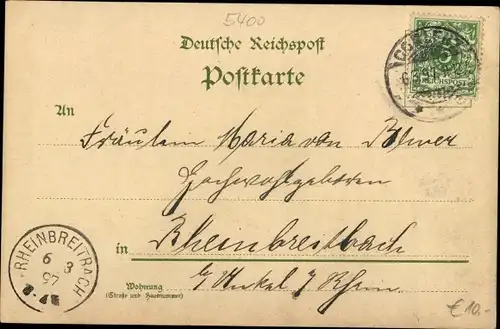 5400
Deutsche Reichspost
Postkarte
5
An
Fräulein Maria von
Hochwohlgeboren
in Rheinbreitbach
b/ Unkel / Rhein.
Wohnung
(Straße und Hausnummer)
RHEINBREITBACH
6 3
97
€10.-